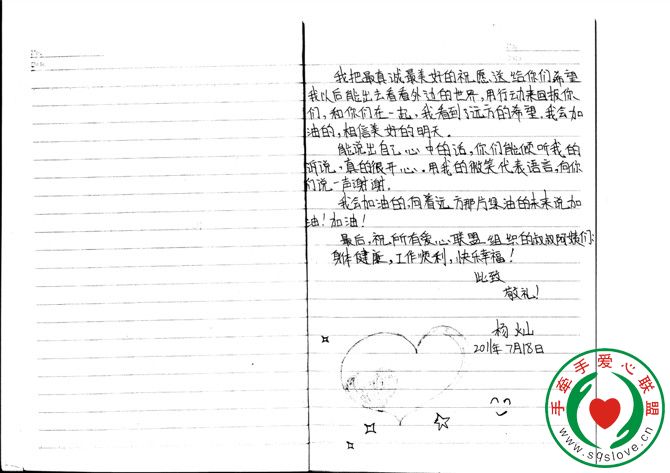 我把最真诚最美好的祝愿送给你们希望
我以后能出去看看外边的世界,用行动来回报你
们,和你们在一起,我看到了远方的希望.我会加
油的,相信美好的明天.
能说出自己心中的话,你们能倾听我的
诉说,真的很开心.用我的微笑代表语言,向你
们说一声谢谢.
我会加油的,向着远方那片集油的未来说加
油!加油!
最后,祝所有爱心联盟组织的叔叔阿姨们:
身体健康,工作顺利,快乐幸福!
此致
敬礼!
杨灿
2011年7月18日
手牵手爱心联盟
www.sqslove.cn